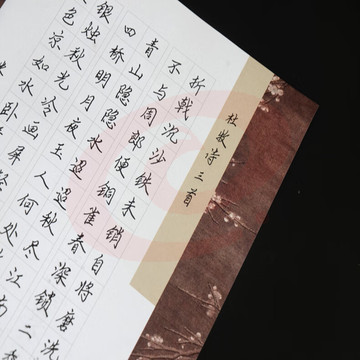 杜牧诗三首
折戟沉沙铁未销自将磨洗
不与周郎便铜雀春深锁二
青山隐隐水迢迢秋尽江南
四桥明月夜玉人何处
银烛秋光冷画屏轻
色凉如水卧